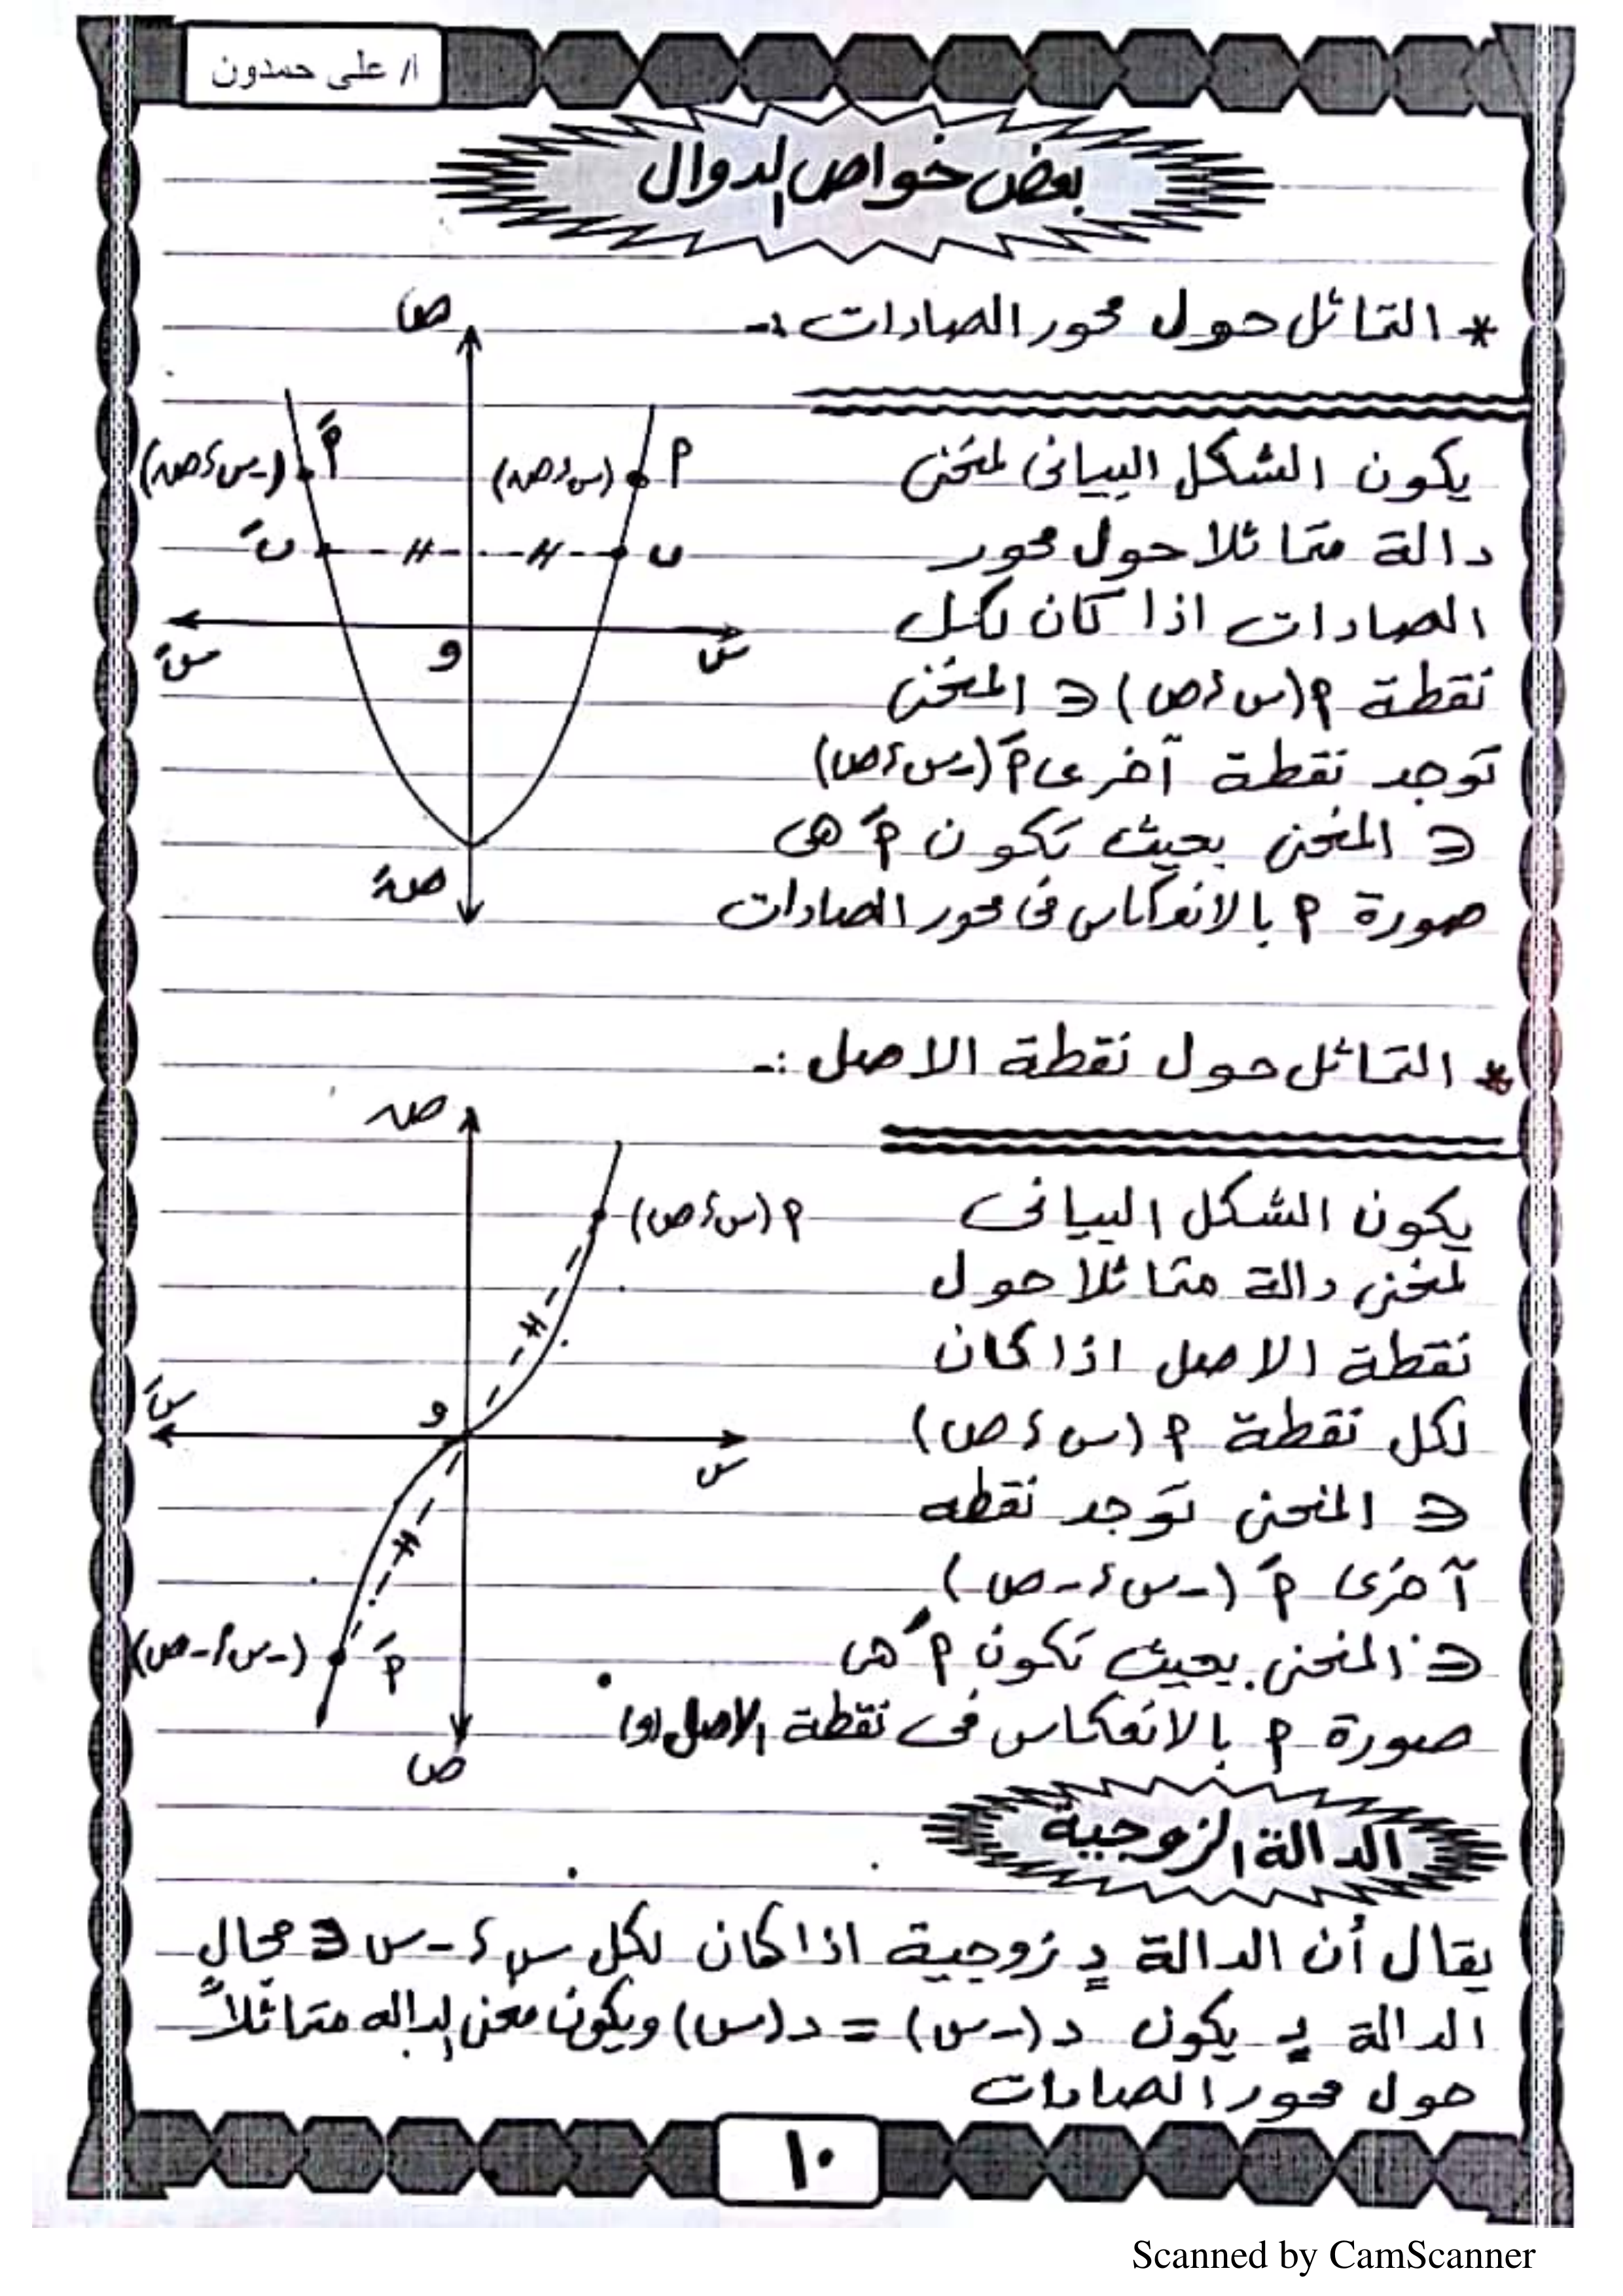 أ/ على حمدون
بعض خواص الدوال
* التماثل حول محور الصادات :-
يكون الشكل البيانى لمنحنى
دالة متماثلا حول محور
الصادات اذا كان لكل
نقطة م (س ، ص) ∈ المنحنى
توجد نقطة آخرى مَ (-س ، ص)
∈ المنحنى بحيث تكون مَ هى
صورة م بالانعكاس فى محور الصادات
ص
مَ
(-س ، ص)
(س ، ص)
م
بَ
ب
سَ
و
س
صَ
* التماثل حول نقطة الاصل :-
يكون الشكل البيانى
لمنحنى دالة متماثلا حول
نقطة الاصل اذا كان
لكل نقطة م (س ، ص)
∈ المنحنى توجد نقطه
آخرى مَ (-س ، -ص)
∈ المنحنى بحيث تكون مَ هى
صورة م بالانعكاس فى نقطة الاصل (و)
ص
م (س ، ص)
سَ
و
س
(-س ، -ص)
مَ
ص
الدالة الزوجية
يقال أن الدالة د زوجية اذا كان لكل س ، -س ∈ مجال
الدالة د يكون د (-س) = د (س) ويكون منحنى الداله متماثلاً
حول محور الصادات
١٠
Scanned by CamScanner